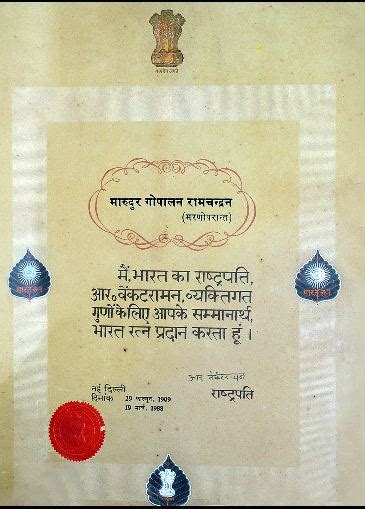 सत्यमेव जयते
मारुदुर गोपालन रामचन्द्रन
(मरणोपरान्त)
मैं, भारत का राष्ट्रपति,
आर॰ वेंकटरामन, व्यक्तिगत
गुणों के लिए आपके सम्मानार्थ,
भारत रत्न प्रदान करता हूं ।
भारत रत्न
भारत रत्न
आर वेंकटरामन
नई दिल्ली
राष्ट्रपति
दिनांक 29 फाल्गुन, 1909
19 मार्च, 1988